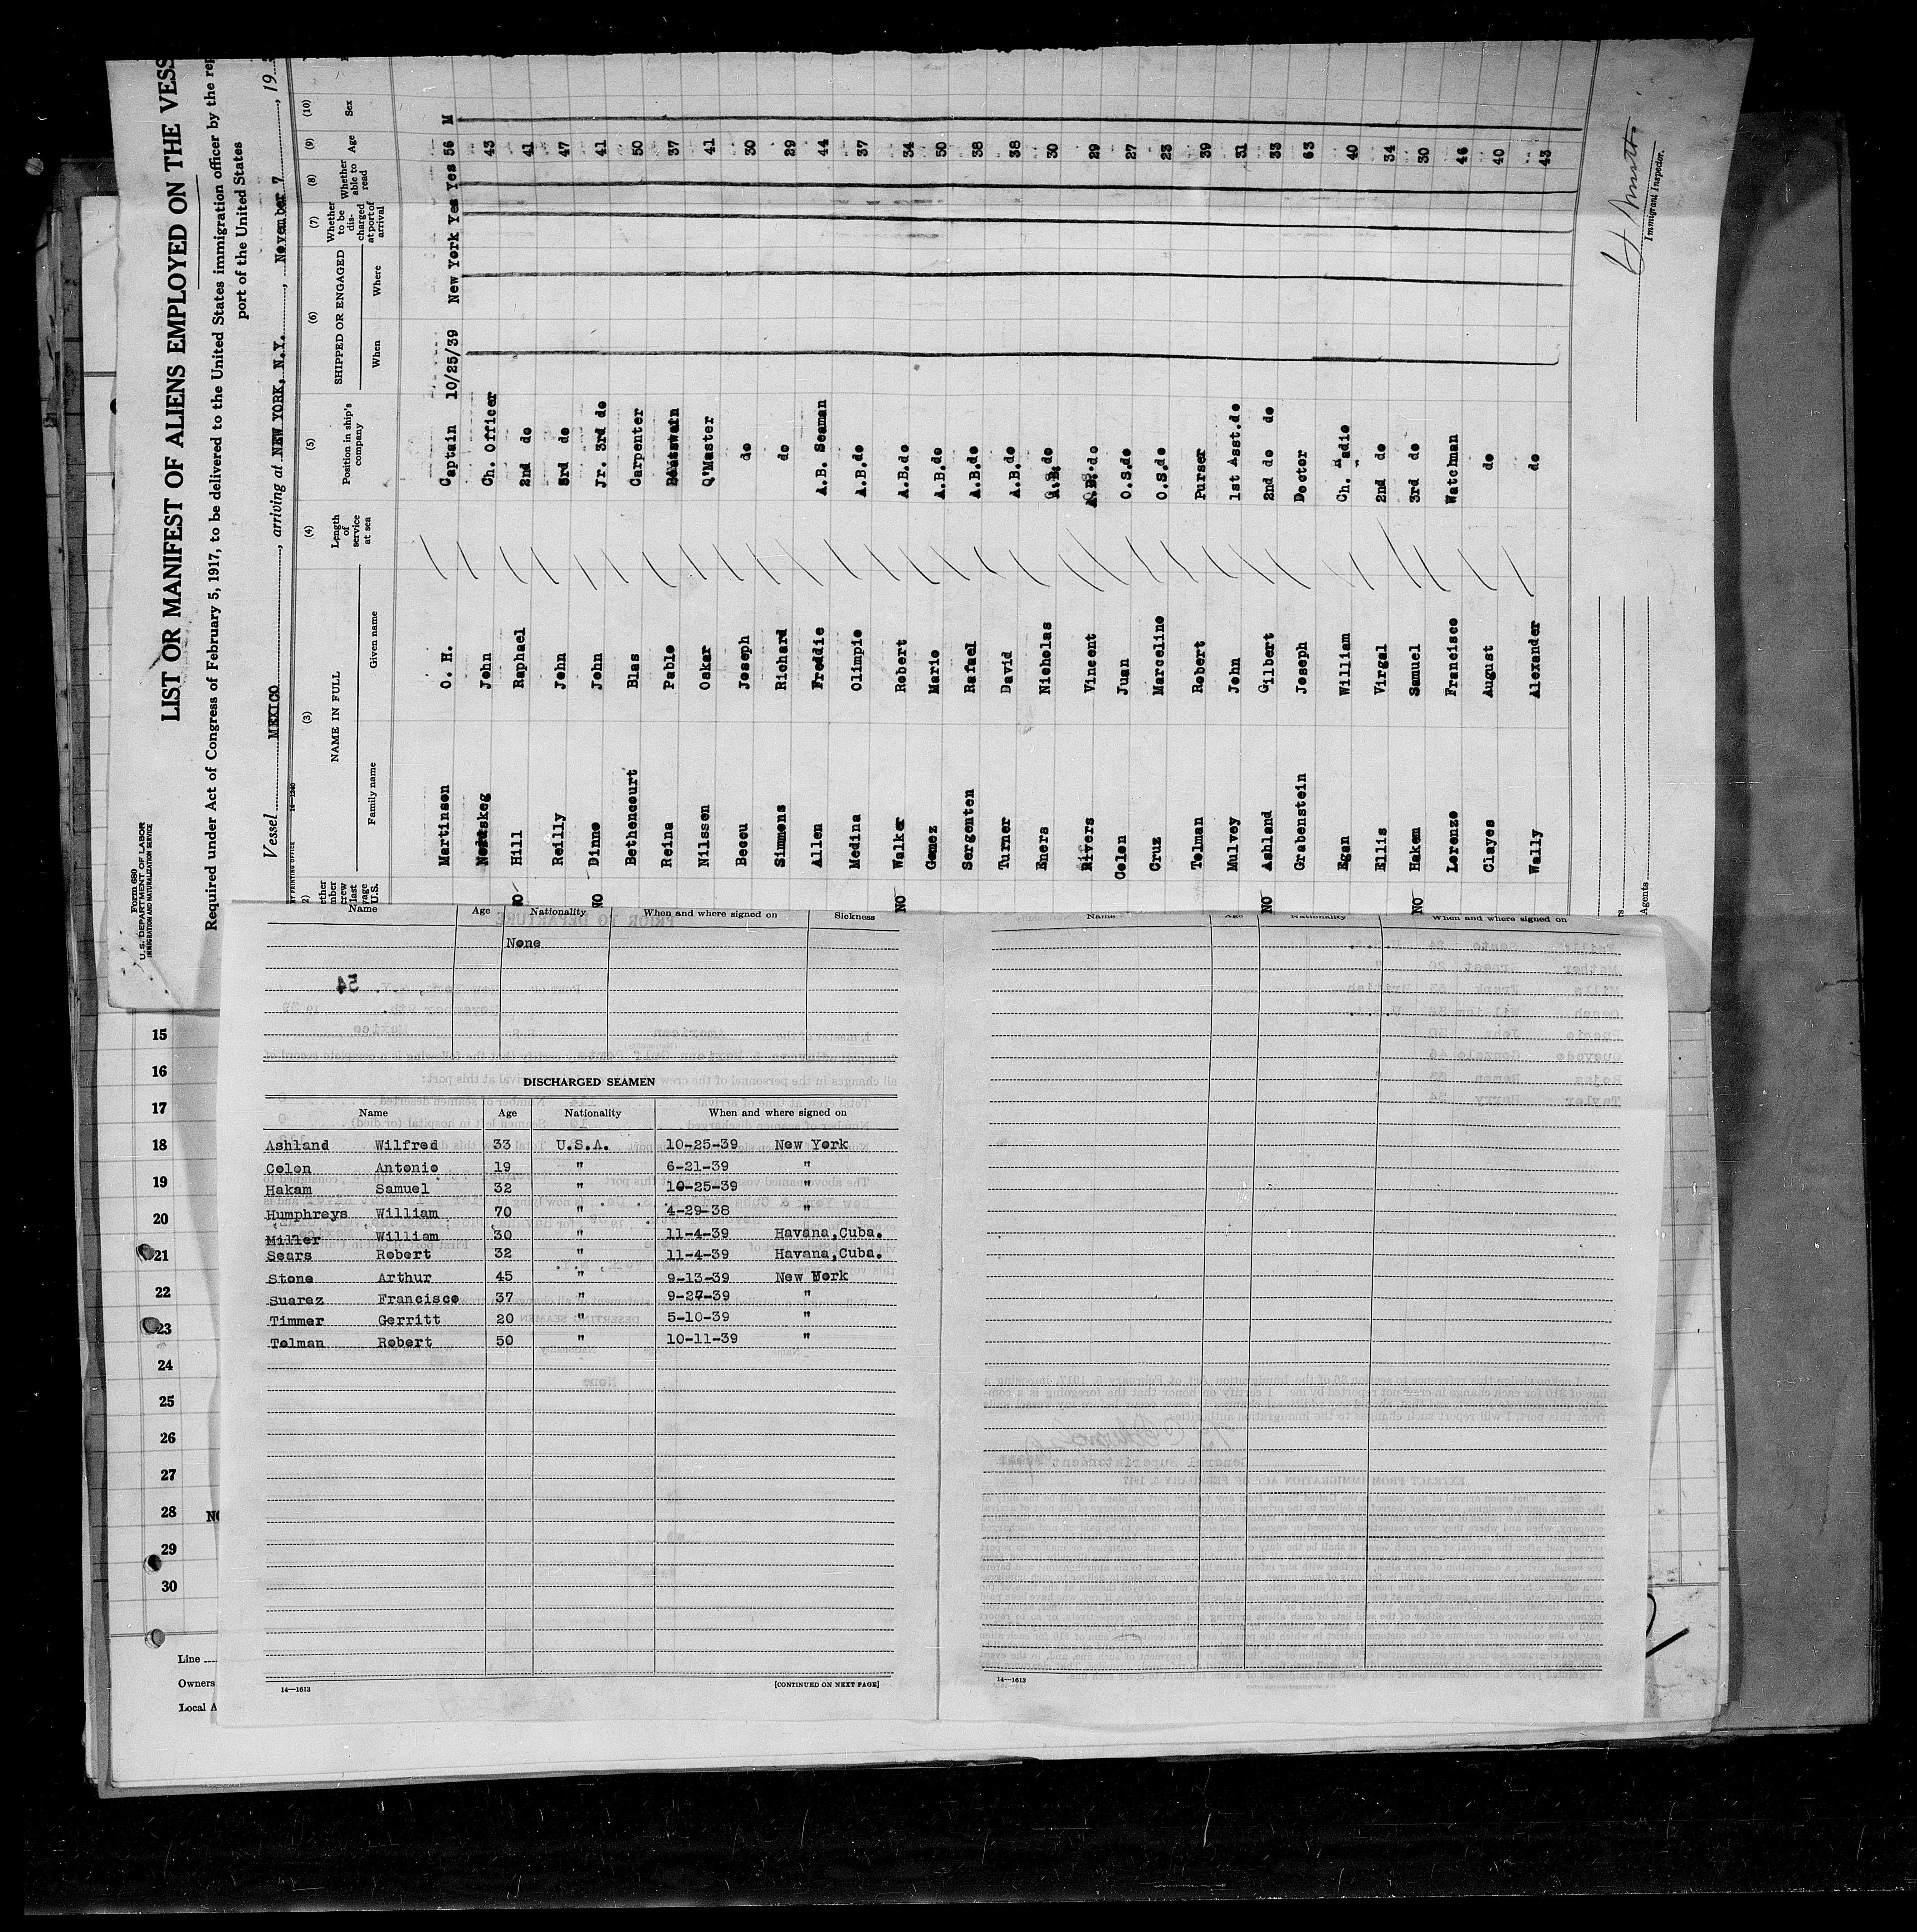 Form 680
U. S. DEPARTMENT OF LABOR
IMMIGRATION AND NATURALIZATION SERVICE
LIST OR MANIFEST OF ALIENS EMPLOYED ON THE VESS
Required under Act of Congress of February 5, 1917, to be delivered to the United States immigration officer by the rep
port of the United States
Vessel MEXICO, arriving at NEW YORK, N.Y., November 7, 19
(3) (4) (5) (6) (7) (8) (9) (10)
NAME IN FULL
Family name Given name
Length of service at sea
Position in ship's company
SHIPPED OR ENGAGED
When Where
Whether to be discharged at port of arrival
Whether able to read
Age
Sex
Martinson O. H. Captain 10/25/39 New York Yes Yes 56 M
John Ch. Officer 43
NO Hill Raphael 2nd do 41
Reilly John 3rd do 47
NO Dinne John Jr. 3rd do 41
Bethencourt Blas Carpenter 50
Reina Pablo Boatswain 37
Nilssen Oskar Q'Master 41
Beccu Joseph do 30
Simmons Richard do 29
Allen Freddie A.B. Seaman 44
Medina Olimpio A.B.do 37
NO Walker Robert A.B.do 34
Gomez Mario A.B.do 50
Sergenten Rafael A.B.do 38
Turner David A.B.do 38
Eners Nicholas do 30
Rivers Vincent do 29
Colon Juan O.S.do 27
Cruz Marceline O.S.do 23
Tolman Robert Purser 39
Mulvey John 1st Asst.do 31
NO Ashland Gilbert 2nd do do 33
Grabenstein Joseph Doctor 63
Egan William Ch. Radio 40
Ellis Virgal 2nd do 34
NO Hakem Samuel 3rd do 30
Lorenzo Francisco Watchman 46
Clayes August do 40
Wally Alexander do 43
Immigrant Inspector.
Agents
Name Age Nationality When and where signed on Sickness
None
54
DISCHARGED SEAMEN
Name Age Nationality When and where signed on
Ashland Wilfred 33 U.S.A. 10-25-39 New York
Colon Antonio 19 " 6-21-39 "
Hakam Samuel 32 " 10-25-39 "
Humphreys William 70 " 4-29-38 "
Miller William 30 " 11-4-39 Havana,Cuba.
Sears Robert 32 " 11-4-39 Havana,Cuba.
Stone Arthur 45 " 9-13-39 New York
Suarez Francisco 37 " 9-27-39 "
Timmer Gerritt 20 " 5-10-39 "
Tolman Robert 50 " 10-11-39 "
14—1613 [CONTINUED ON NEXT PAGE]
Name Age Nationality When and where signed on
14—1613
15
16
17
18
19
20
21
22
23
24
25
26
27
28 NO
29
30
Line
Owners
Local A